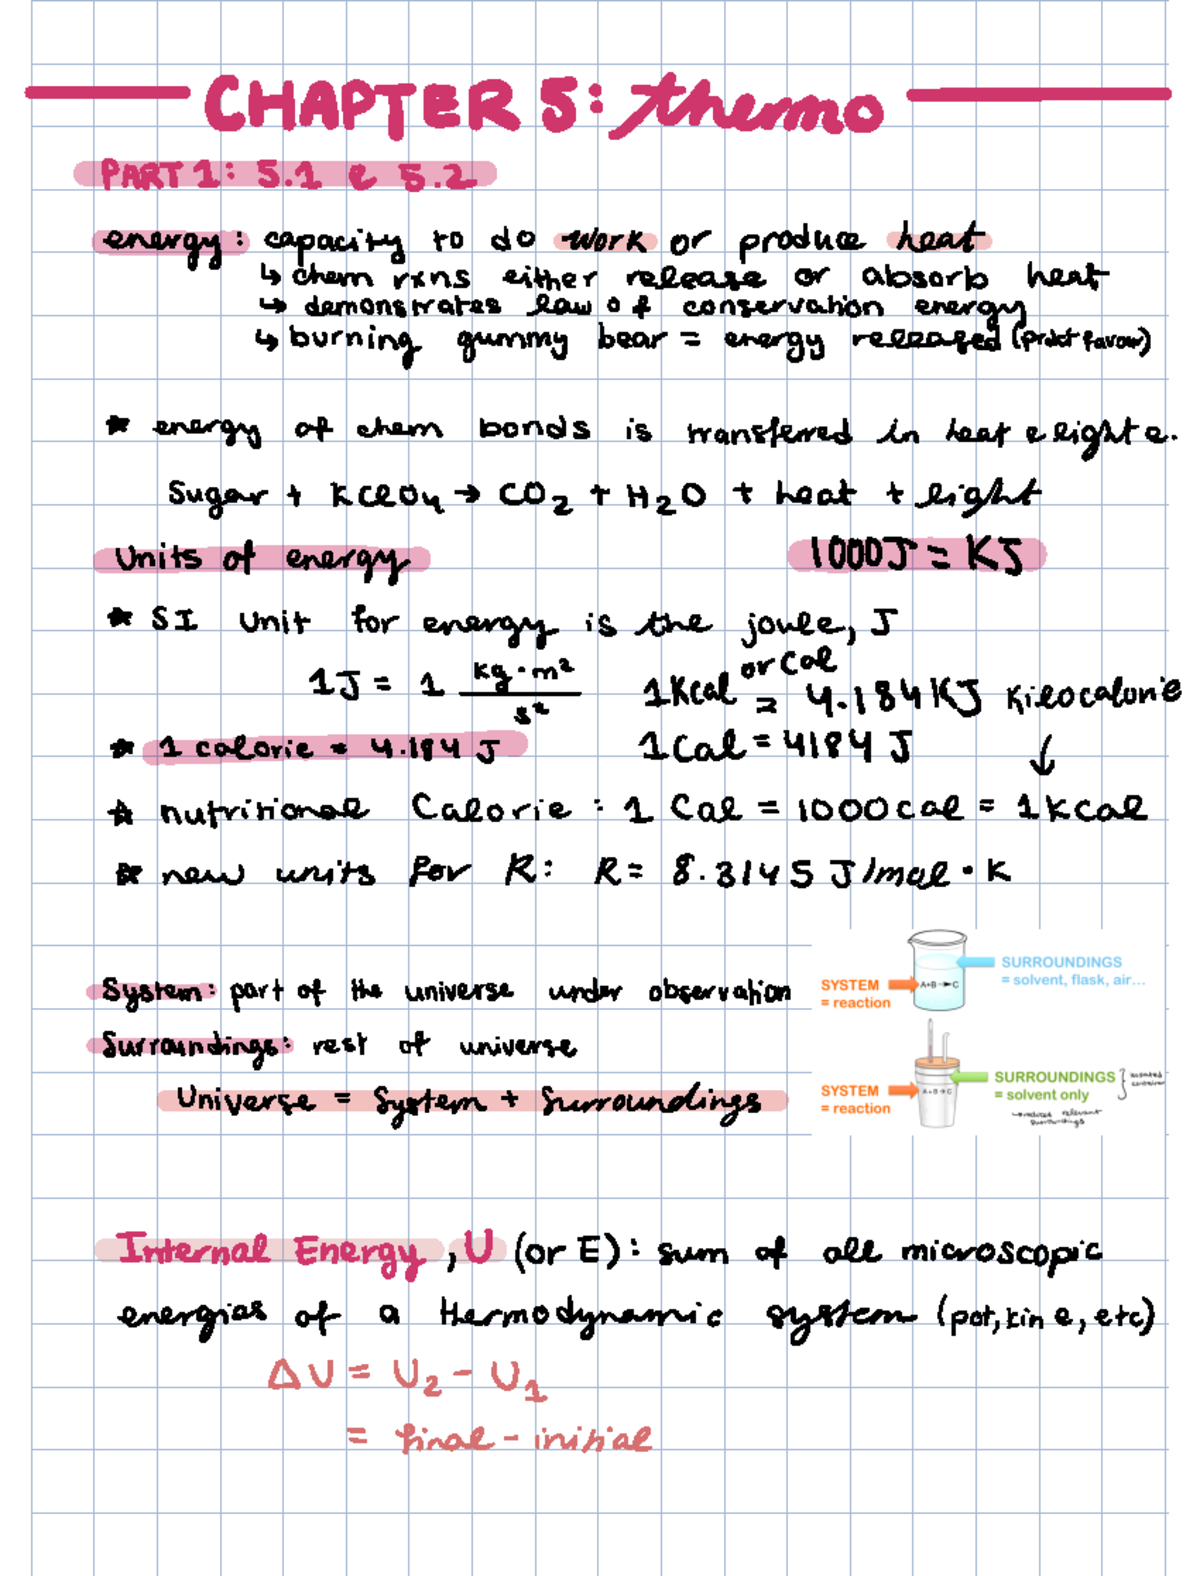 CHAPTER 5: thermo
PART 1: 5.1 & 5.2
energy: capacity to do work or produce heat
↳ chem rxns either release or absorb heat
↳ demonstrates law of conservation energy
↳ burning gummy bear = energy released (prdct favour)
★ energy of chem bonds is transferred in heat & light e.
Sugar + KClO4 → CO2 + H2O + heat + light
Units of energy
1000J = KJ
★ SI unit for energy is the joule, J
1J = 1 kg·m²/s²
1Kcal or Cal = 4.184KJ Kilocalorie
★ 1 calorie = 4.184 J
1Cal = 4184 J ↓
★ nutritional Calorie: 1 Cal = 1000cal = 1kcal
★ new units for R: R = 8.3145 J/mol·K
System: part of the universe under observation
Surroundings: rest of universe
Universe = System + Surroundings
SURROUNDINGS
= solvent, flask, air...
SYSTEM
= reaction
A+B→C
SURROUNDINGS
= solvent only
SYSTEM
= reaction
A+B→C
relevant
surroundings
Internal Energy, U (or E): sum of all microscopic
energies of a thermodynamic system (pot, kin e, etc)
ΔU = U2 - U1
= final - initial